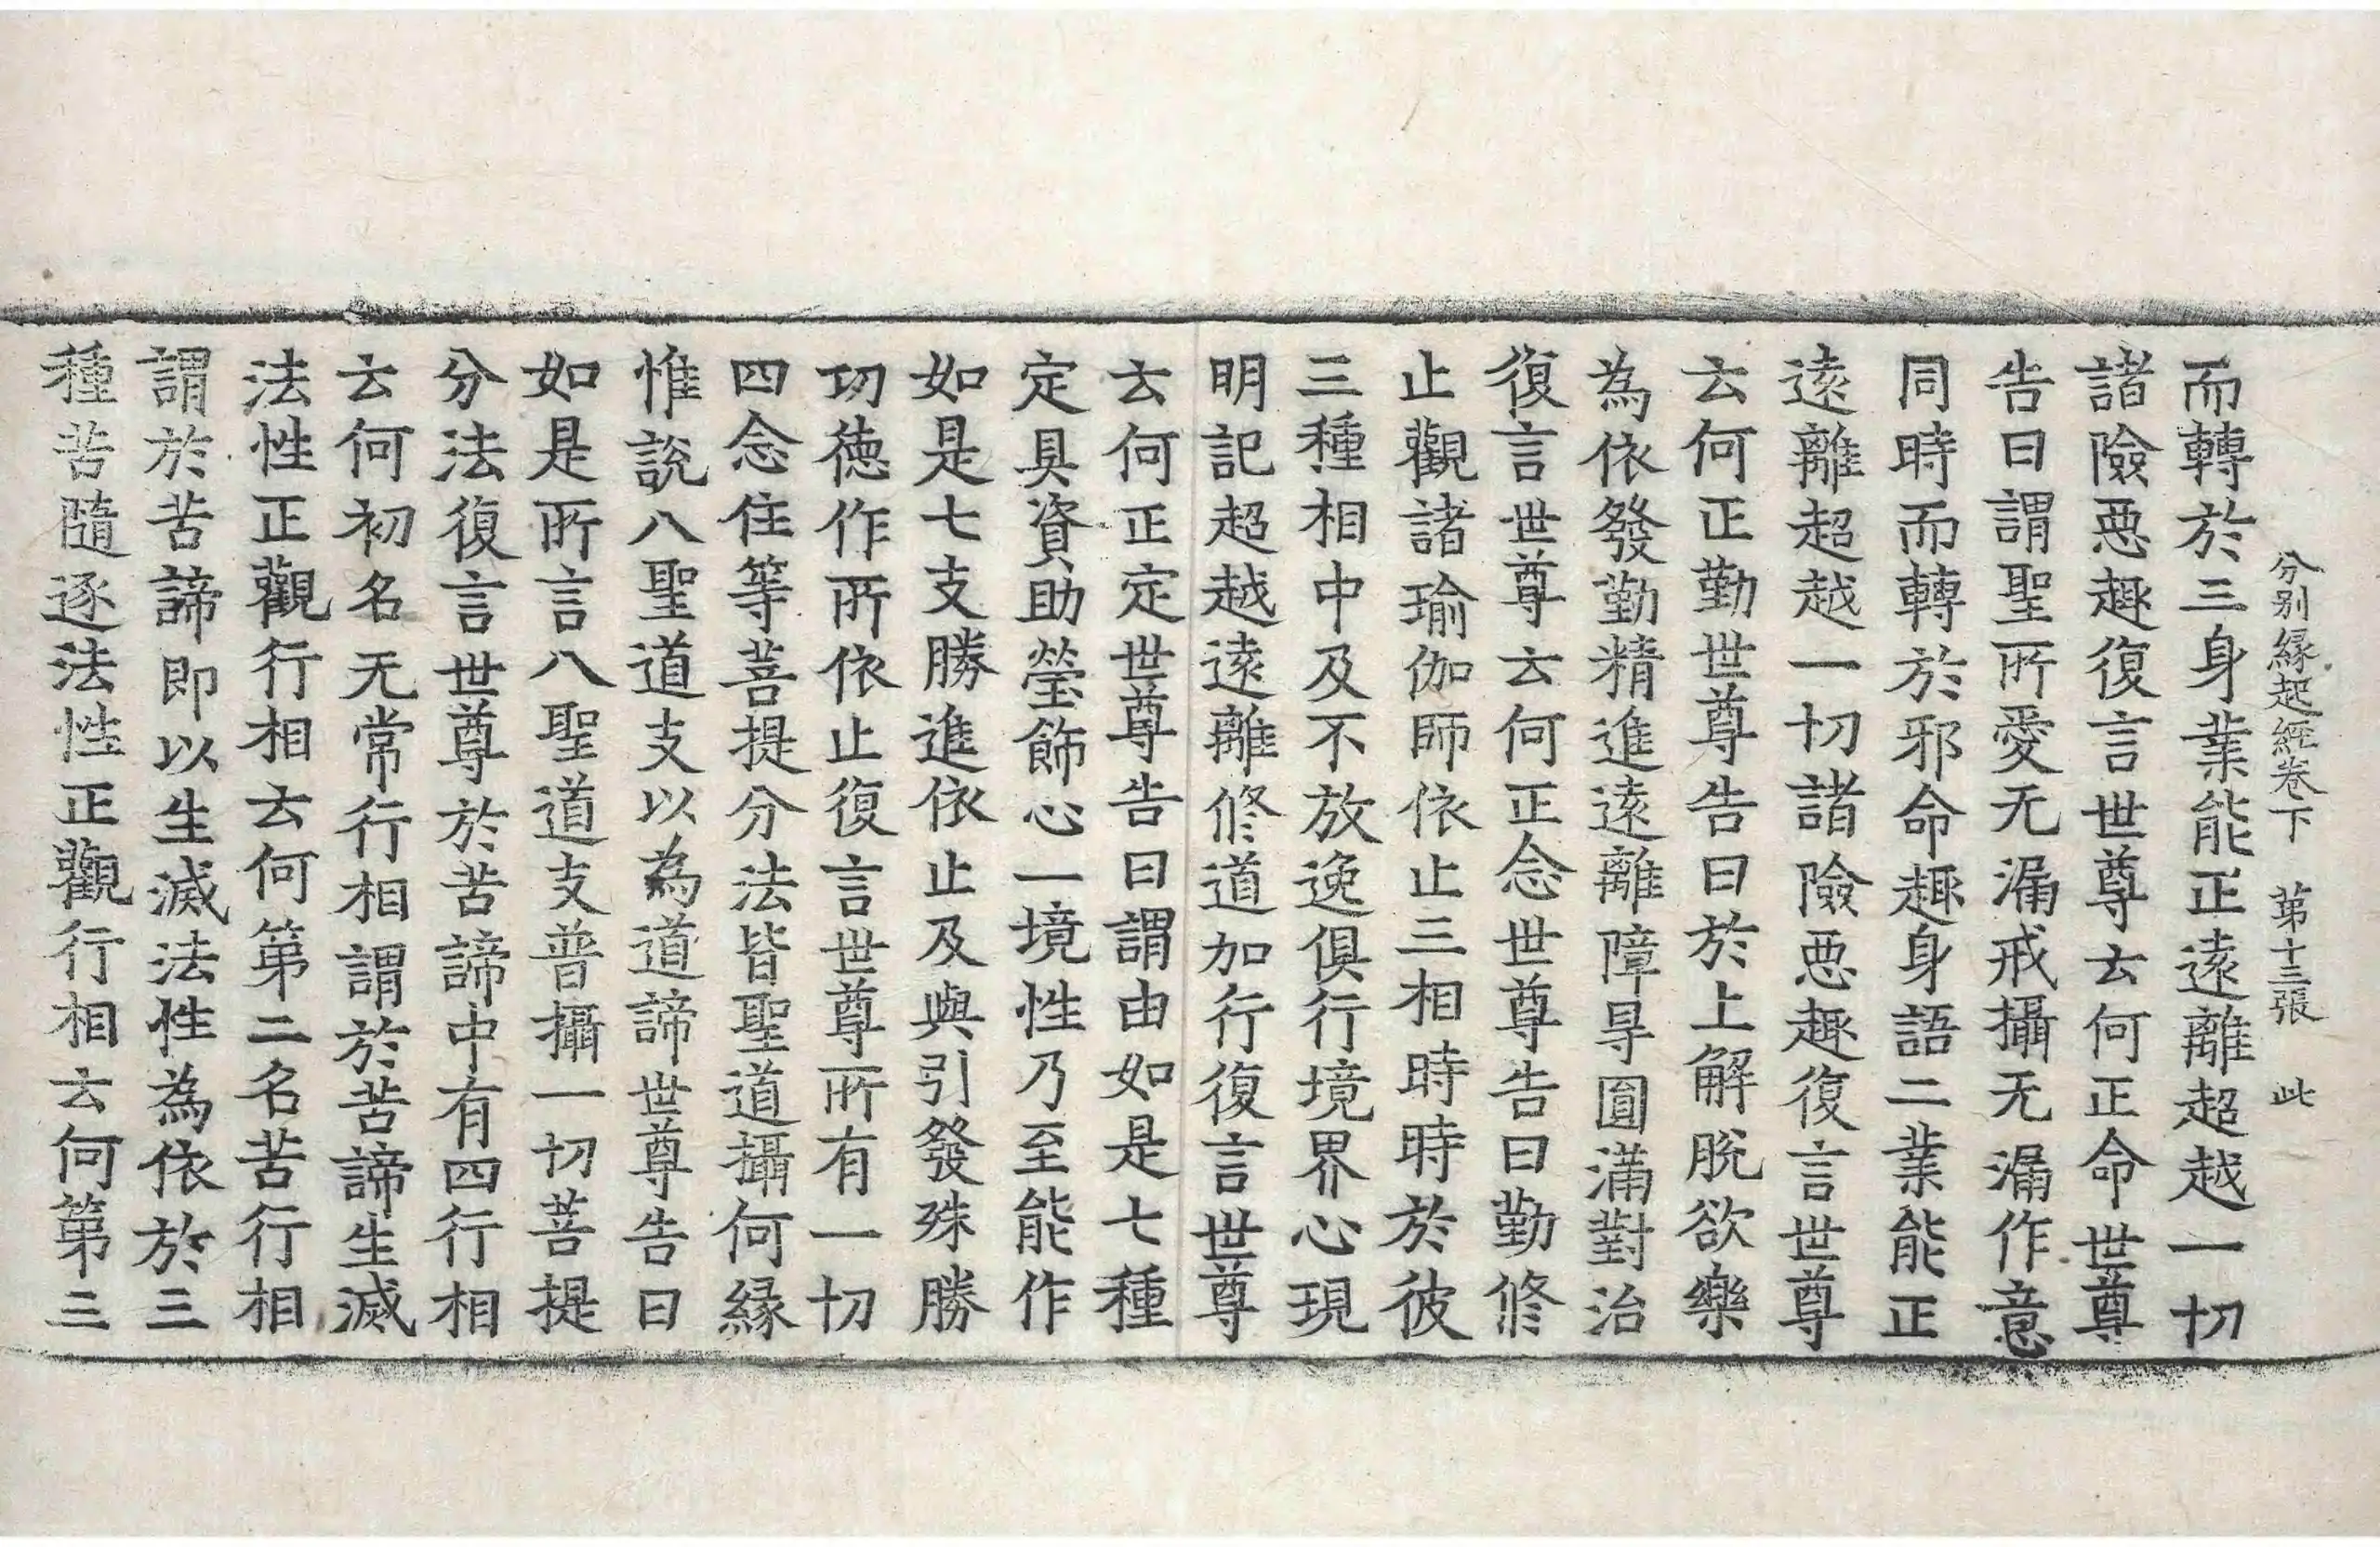 分别縁起経卷下　苐十三張　此
而轉於三身業能正逺離超越一切
諸險惡趣復言世尊云何正命世尊
告曰謂聖所愛无漏戒攝无漏作意
同時而轉於邪命趣身語二業能正
逺離超越一切諸險惡趣復言世尊
云何正勤世尊告曰於上解脫欲樂
為依發勤精進逺離障㝵圓滿對治
復言世尊云何正念世尊告曰勤修
止觀諸瑜伽師依止三相時時於彼
三種相中及不放逸俱行境界心現
明記超越逺離修道加行復言世尊
云何正定世尊告曰謂由如是七種
定具資助瑩飾心一境性乃至能作
如是七支勝進依止及與引發殊勝
切德作所依止復言世尊所有一切
四念住等菩提分法皆聖道攝何縁
惟說八聖道支以為道諦世尊告曰
如是所言八聖道支普攝一切菩提
分法復言世尊於苦諦中有四行相
云何初名无常行相謂於苦諦生滅
法性正觀行相云何第二名苦行相
謂於苦諦即以生滅法性為依於三
種苦隨逐法性正觀行相云何第三